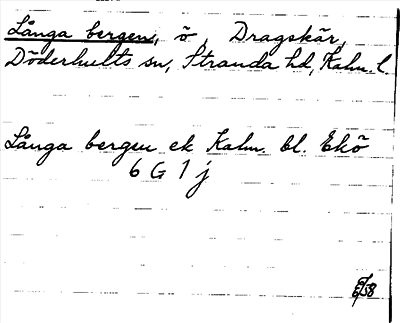 Långa bergen, ö, Dragskär,
Döderhults sn, Stranda hd, Kalm. l.
Långa bergen ek Kalm. bl. Ekö
6 G 1 j